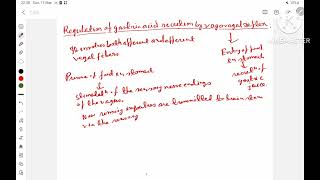 Regulation of gastric acid secretion by vagovagal reflex.
It involves both afferent and efferent
vagal fibers.
Presence of food in stomach
↓
Stimulatn of the sensory nerve endings
of the vagus.
Now sensory impulses are transmitted to brain stem
via the sensory
Entry of food
in stomach
↓
secretn of
gastric
juice.